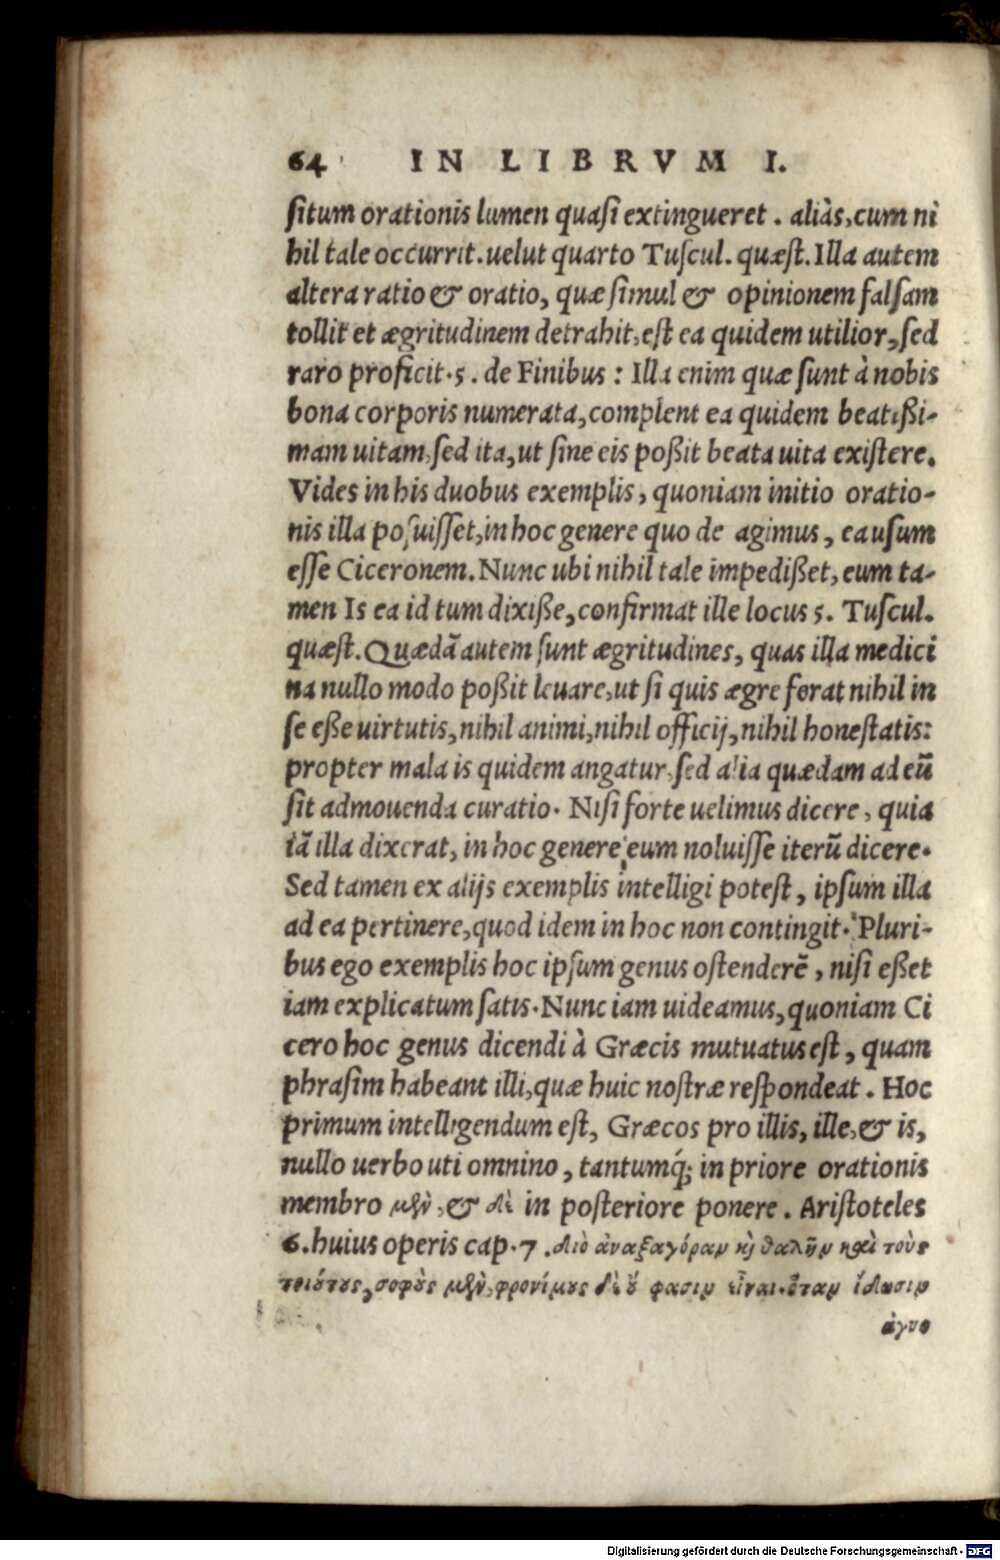 64 IN LIBRVM I.
ſitum orationis lumen quaſi extingueret. aliàs, cum ni
hil tale occurrit. uelut quarto Tuſcul. quæſt. Illa autem
altera ratio & oratio, quæ ſimul & opinionem falſam
tollit et ægritudinem detrahit, eſt ea quidem utilior, ſed
raro proficit. 5. de Finibus: Illa enim quæ ſunt à nobis
bona corporis numerata, complent ea quidem beatißi-
mam uitam, ſed ita, ut ſine eis poßit beata uita exiſtere.
Vides in his duobus exemplis, quoniam initio oratio-
nis illa poſuiſſet, in hoc genere quo de agimus, ea uſum
eſſe Ciceronem. Nunc ubi nihil tale impedißet, eum ta-
men Is ea id tum dixiße, confirmat ille locus 5. Tuſcul.
quæſt. Quædã autem ſunt ægritudines, quas illa medici
na nullo modo poßit leuare, ut ſi quis ægre ferat nihil in
ſe eße uirtutis, nihil animi, nihil officij, nihil honeſtatis:
propter mala is quidem angatur, ſed alia quædam ad eũ
ſit admouenda curatio. Niſi forte uelimus dicere, quia
iã illa dixerat, in hoc genere eum noluiſſe iterũ dicere.
Sed tamen ex alijs exemplis intelligi poteſt, ipſum illa
ad ea pertinere, quod idem in hoc non contingit. Pluri-
bus ego exemplis hoc ipſum genus oſtenderẽ, niſi eßet
iam explicatum ſatis. Nunc iam uideamus, quoniam Ci
cero hoc genus dicendi à Græcis mutuatus eſt, quam
phraſim habeant illi, quæ huic noſtræ reſpondeat. Hoc
primum intelligendum eſt, Græcos pro illis, ille, & is,
nullo uerbo uti omnino, tantumq́; in priore orationis
membro μὲν, & δὲ in poſteriore ponere. Ariſtoteles
6. huius operis cap. 7. διὸ ἀναξαγόραν κὶ θαλῆν καὶ τοὺς
τοιούτους, σοφοὺς μὲν, φρονίμους δὲ οὔ φασιν εἶναι. ὅταν ἴδωσιν
ἀγνο
Digitalisierung gefördert durch die Deutsche Forschungsgemeinschaft - DFG